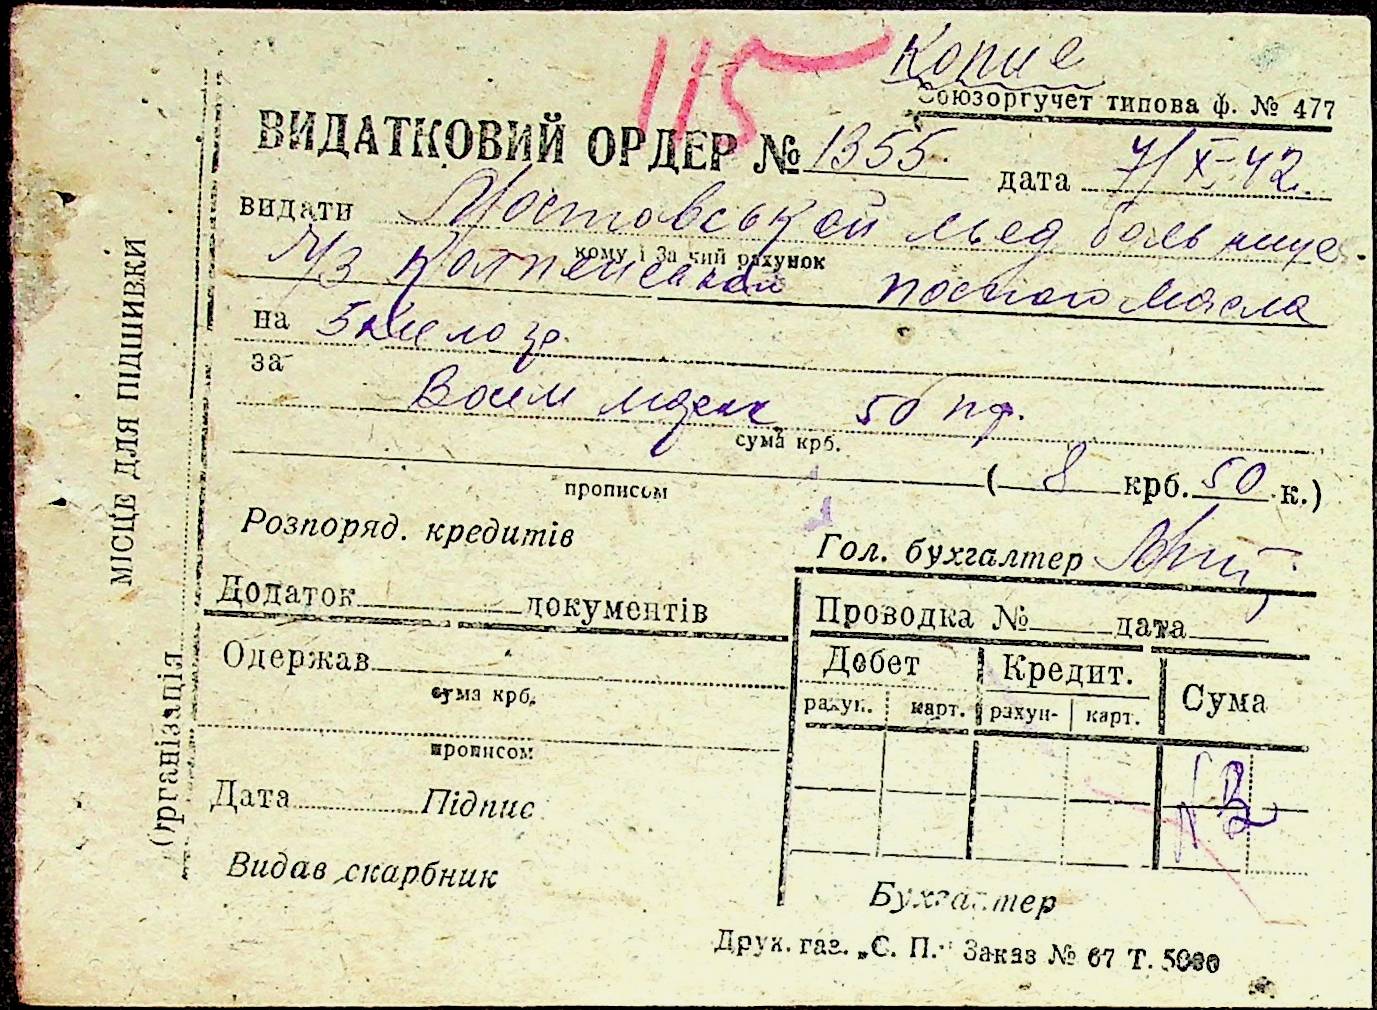 115
Копие
Союзоргучет типова ф. № 477
ВИДАТКОВИЙ ОРДЕР № 1355 дата 7/X-42
видати Мостовськой мед больнице
кому і за чий рахунок
посного масла
на 5 кило гр.
за
Восем марок 50 пф.
сума крб.
прописом ( 8 крб. 50 к.)
Розпоряд. кредитів
Гол. бухгалтер
Додаток документів
Проводка № дата
Одержав
сума крб.
Дебет Кредит. Сума
рахун. карт. рахун- карт.
прописом
Дата Підпис
Видав скарбник
Бухгалтер
Друк. газ. „С. П.“ Заказ № 67 Т. 5000
МІСЦЕ ДЛЯ ПІДШИВКИ
Організація